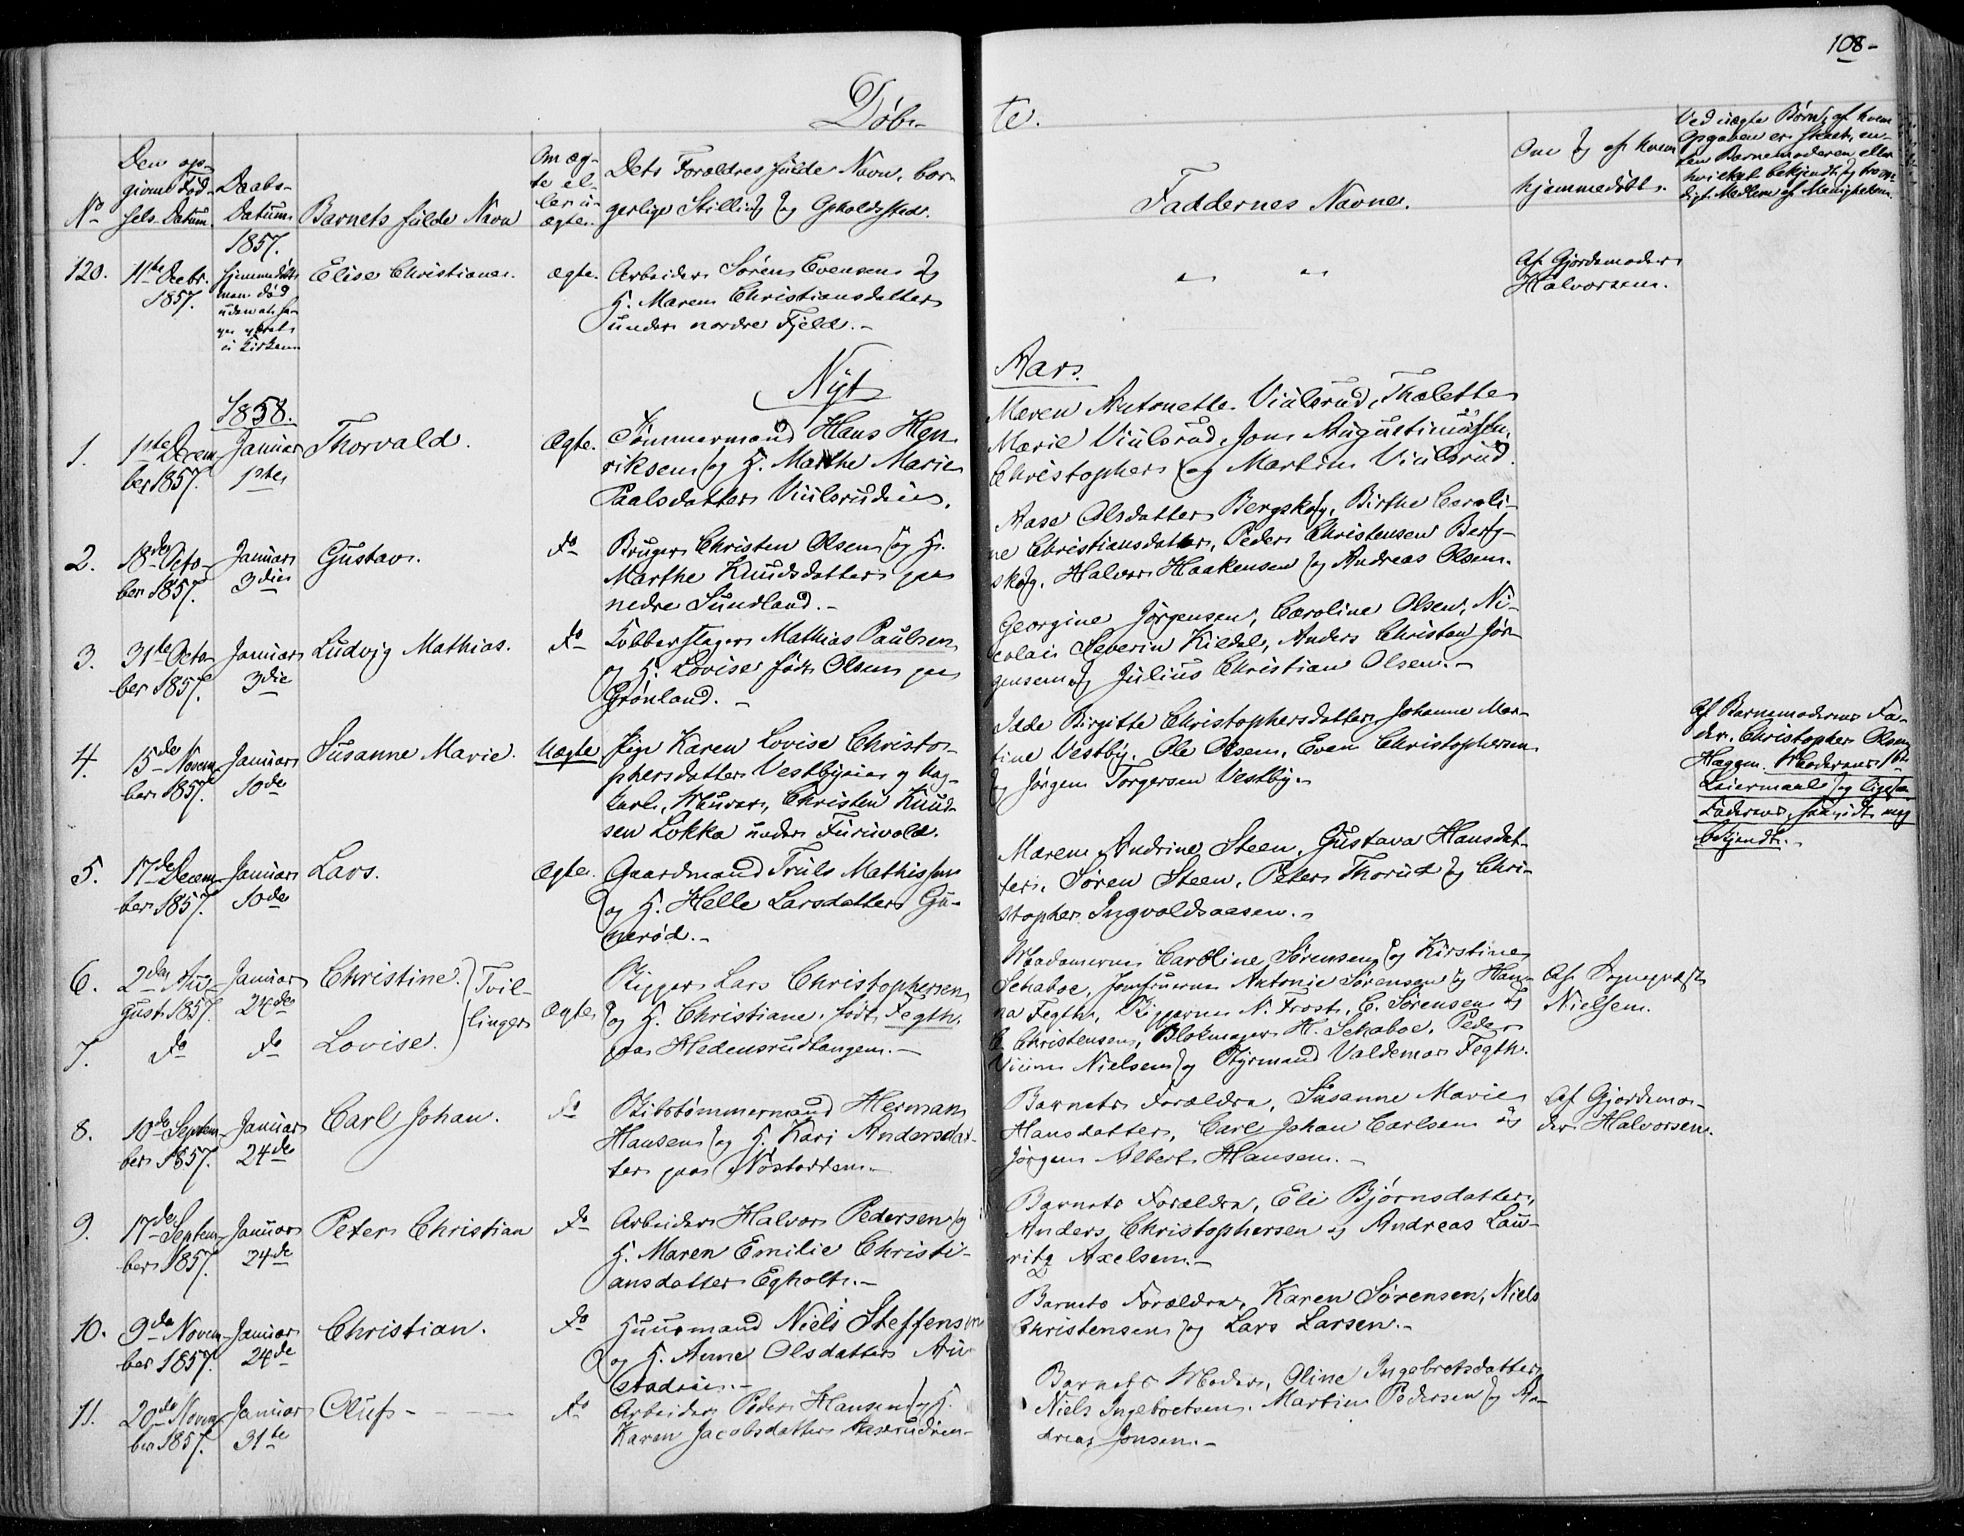 108-
Døb-
te.
No
Den op-
givne Fød-
sels Datum.
Daabs-
Datum.
Barnets fulde Navn
Om æg-
te el-
ler u-
ægte.
Dets Forældres fulde Navn, bor-
gerlige Stilling og Opholdssted.
Faddernes Navne.
Om og af hvem
hjemmedøbt.
Ved uægte Børn, af hvem
Opgaven er skeet, en-
ten Barnemoderen eller
hvilket bekjendt og trovær-
digt Medlem af Menigheden.
1857.
120.
11te Decbr.
1857.
Hjemmedøbt
men død
uden at ha-
ve været
i Kirken
Elise Christiane.
ægte.
Arbeider Søren Evensen og
H. Maren Christiansdatter
under nordre Fjeld.-
" "
Af Gjordemoder
Halvorsen.
Nyt
Aar.
1858.
1.
1ste Decem-
ber 1857.
Januar
1ste
Thorvald.
Ægte.
Tømmermand Hans Hen-
riksen og H. Marthe Marie
Paalsdatter Viulsrudeie.
Maren Antonette Viulsrud, Tholette
Marie Viulsrud, Jon Augustinussen,
Christopher og Martin Viulsrud.
2.
18de Octo-
ber 1857.
Januar
3die
Gustav.
do
Bruger Christen Olsen og H.
Marthe Knudsdatter paa
nedre Sundland.-
Aase Olsdatter Bergskog, Birthe Caroli-
ne Christiansdatter, Peder Christensen Berg-
skog, Halvor Haakensen og Andreas Olsen.
3.
31te Octo-
ber 1857.
Januar
3die
Ludvig Mathias.
do
Kobberslager Mathias Paulsen
og H. Lovise født Olsen paa
Grønland.-
Georgine Jørgensen, Caroline Olsen, Ni-
colai Severin Kildal, Anders Christan Jør-
gensen og Julius Christian Olsen.-
4.
15de Novem-
ber 1857.
Januar
10de
Susanne Marie.
Uægte
Pige Karen Lovise Christo-
phersdatter Vestbyeie og Ung-
karl, Muurer, Christen Knud-
sen Løkka under Furuvald.
Birgitte Christophersdatter, Johanne Mar-
tine Vestby, Ole Olsen, Even Christophersen
og Jørgen Torgersen Vestby.
Af Barnemoderens Fa-
der, Christopher Olsen
Haggen. Moderens 1ste
Leiermaal og ligesaa
Faderens, saavidt mig
bekjendt.
5.
17de Decem-
ber 1857.
Januar
10de
Lars.
Ægte.
Gaardmand Truls Mathissen
og H. Helle Larsdatter Gu-
nerød.-
Maren Andrine Steen, Gustava Hansdat-
ter, Søren Steen, Peter Thorud og Chri-
stopher Ingvoldsaasen.
6.
2den Au-
gust 1857.
Januar
24de
Christine.
Tvil-
linger
Ægte.
Skipper Lars Christophersen
og H. Christiane født Fegth
paa Hedensrudtangen.-
Madamerne Caroline Sørensen og Kirstine
Schaboe, Jomfruerne Antonie Sørensen og Han-
na Fegth, Skipperne N. Frost, C. Sørensen og
C. Christensen, Blokmager H. Schaboe, Peder
Nielsen og Styrmand Valdemar Fegth.
Af Sogneprest
Nielsen.
7.
do
do
Lovise.
8.
10de Septem-
ber 1857.
Januar
24de
Carl Johan.
do
Skibstømmermand Herman
Hansen og H. Kari Andersdat-
ter paa Nøstodden.-
Barnets Forældre, Susanne Marie
Hansdatter, Carl Johan Carlsen og
Jørgen Albert Hansen.-
Af Gjordemo-
der Halvorsen.
9.
17de Septem-
ber 1857.
Januar
24de
Peter Christian
do
Arbeider Halvor Pedersen og
H. Maren Emilie Christi-
ansdatter Egholt.-
Barnets Forældre, Eli Bjørnsdatter,
Anders Christophersen og Andreas Lau-
ritz Axelsen.-
10.
9de Novem-
ber 1857.
Januar
24de
Christian.
do
Huusmand Niels Steffensen
og H. Anne Olsdatter Au-
stadeie.-
Barnets Forældre, Karen Sørensen, Niels
Christensen og Lars Larsen.-
11.
20de Novem-
ber 1857.
Januar
31te
Oluf-
do
Arbeider Peder Hansen og H.
Karen Jacobsdatter Aasrudeie-
Barnets Moder, Oline Ingebretsdatter,
Niels Ingebretsen, Martin Pedersen og An-
dreas Jonsen.-